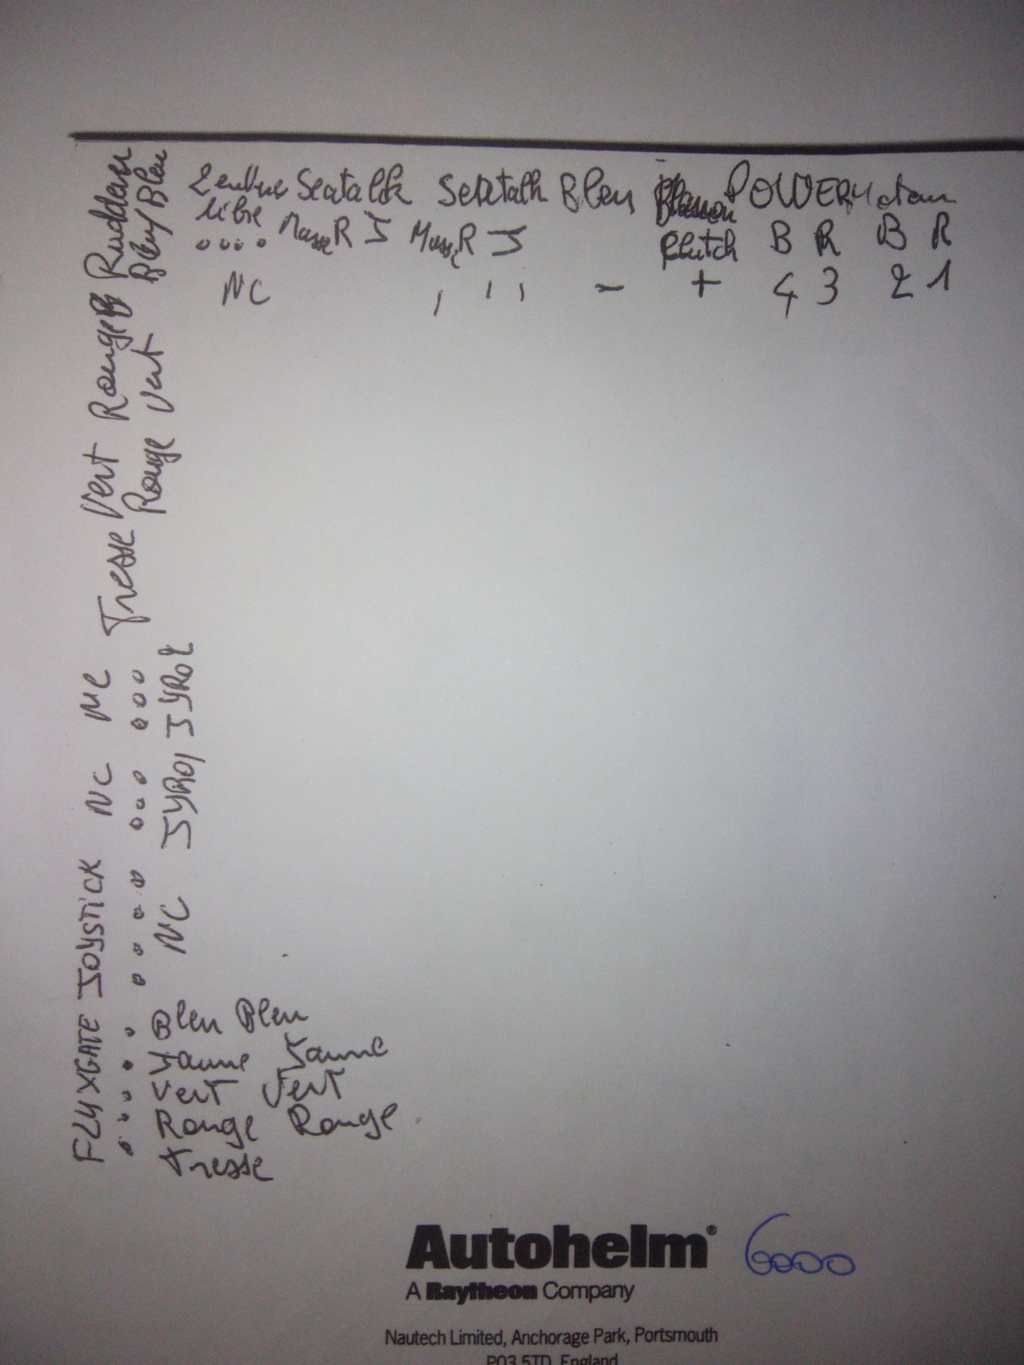 Seatalk Seatalk Bleu POWER
libre Masse R J Masse R J Clutch B R B R
NC - + 4 3 2 1
Rudder
Bleu/Bleu
Tresse Vert Rouge
Rouge Vert
FLUXGATE JOYSTICK NC NC
NC JYRO1 JYRO2
Bleu Bleu
Jaune Jaune
Vert Vert
Rouge Rouge
Tresse
Autohelm® 6000
A Raytheon Company
Nautech Limited, Anchorage Park, Portsmouth
PO3 5TD, England